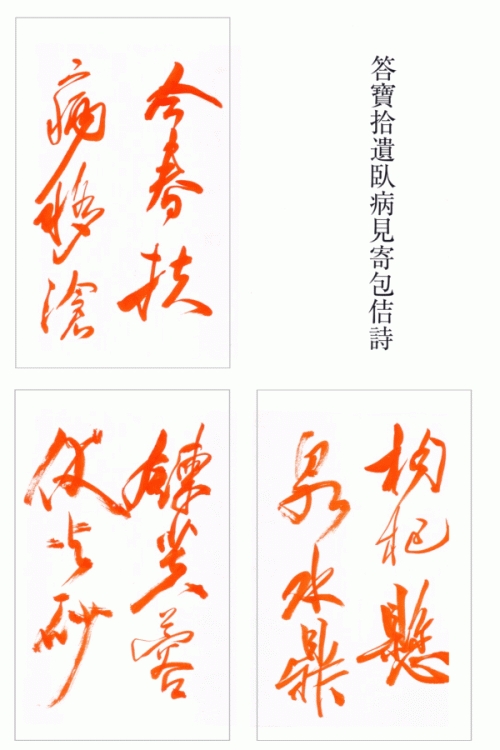 答寶拾遺臥病見寄包佶詩
今春扶
病移滄
枸杞懸
泉水鼎
鍊芙蓉
伏火砂